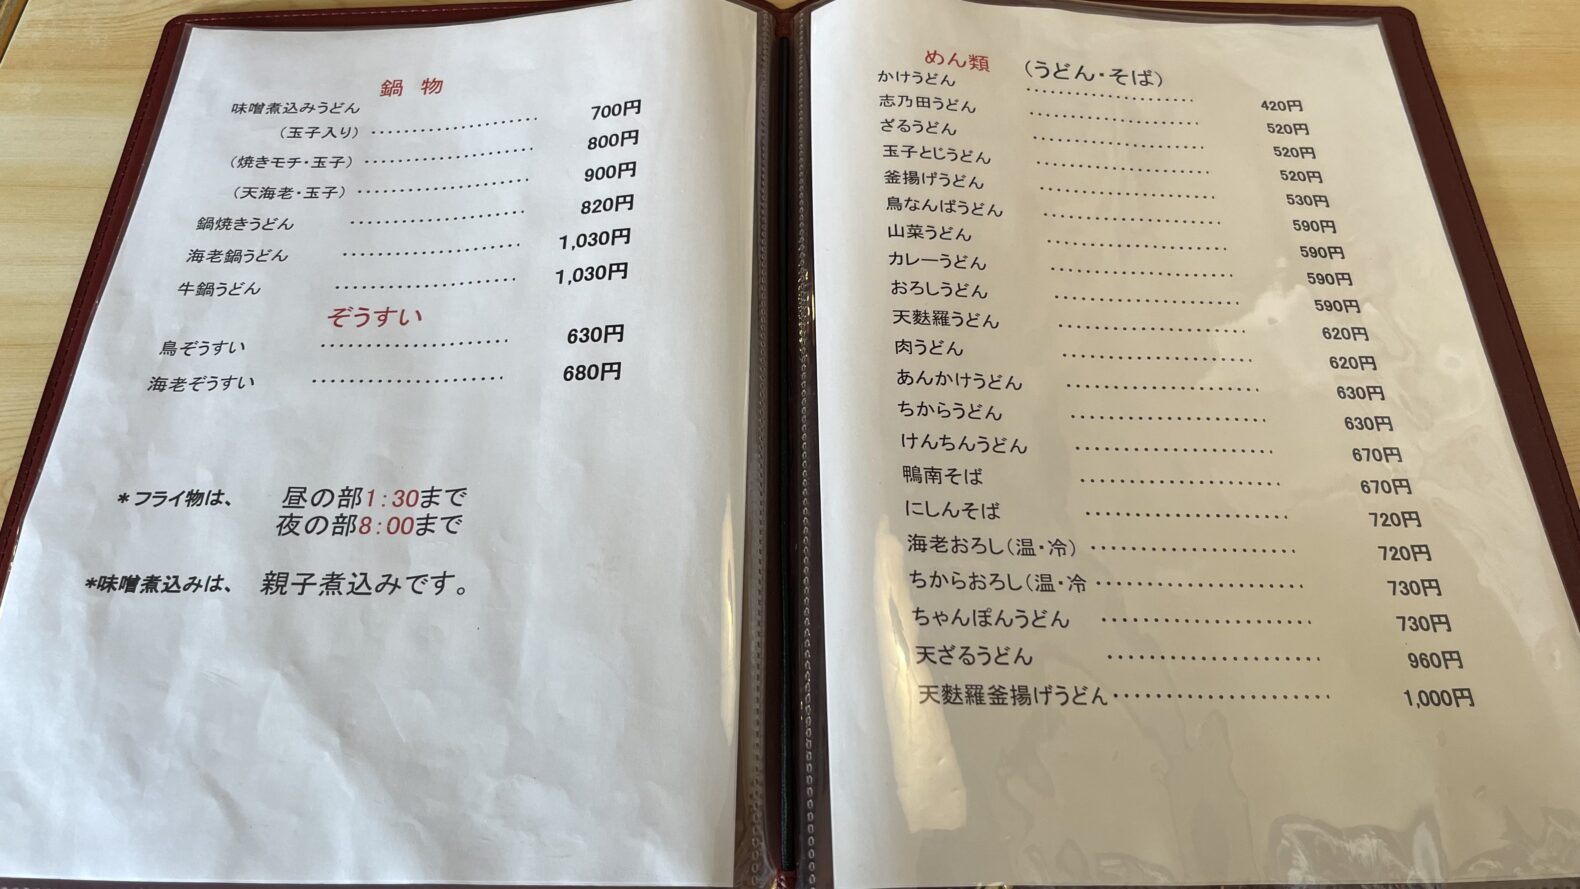 鍋 物
味噌煮込みうどん
（玉子入り） ‥‥‥‥‥‥ 700円
（焼きモチ・玉子） ‥‥‥‥‥‥ 800円
（天海老・玉子） ‥‥‥‥‥‥ 900円
鍋焼きうどん ‥‥‥‥‥‥ 820円
海老鍋うどん ‥‥‥‥‥‥ 1,030円
牛鍋うどん ‥‥‥‥‥‥ 1,030円
ぞうすい
鳥ぞうすい ‥‥‥‥‥‥ 630円
海老ぞうすい ‥‥‥‥‥‥ 680円
＊フライ物は、 昼の部1：30まで
夜の部8：00まで
＊味噌煮込みは、 親子煮込みです。
めん類 （うどん・そば）
かけうどん ‥‥‥‥‥‥ 420円
志乃田うどん ‥‥‥‥‥‥ 520円
ざるうどん ‥‥‥‥‥‥ 520円
玉子とじうどん ‥‥‥‥‥‥ 520円
釜揚げうどん ‥‥‥‥‥‥ 530円
鳥なんばうどん ‥‥‥‥‥‥ 590円
山菜うどん ‥‥‥‥‥‥ 590円
カレーうどん ‥‥‥‥‥‥ 590円
おろしうどん ‥‥‥‥‥‥ 590円
天麩羅うどん ‥‥‥‥‥‥ 620円
肉うどん ‥‥‥‥‥‥ 620円
あんかけうどん ‥‥‥‥‥‥ 630円
ちからうどん ‥‥‥‥‥‥ 630円
けんちんうどん ‥‥‥‥‥‥ 670円
鴨南そば ‥‥‥‥‥‥ 670円
にしんそば ‥‥‥‥‥‥ 720円
海老おろし（温・冷） ‥‥‥‥‥‥ 720円
ちからおろし（温・冷 ‥‥‥‥‥‥ 730円
ちゃんぽんうどん ‥‥‥‥‥‥ 730円
天ざるうどん ‥‥‥‥‥‥ 960円
天麩羅釜揚げうどん ‥‥‥‥‥‥ 1,000円